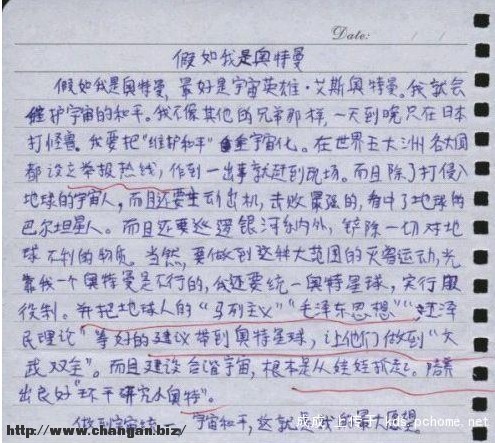 Date: / /
假如我是奥特曼
假如我是奥特曼,最好是宇宙英雄·艾斯奥特曼。我就会
维护宇宙的和平。我不像其他的兄弟那样,一天到晚只在日本
打怪兽。我要把"维护和平"宇宙化。在世界五大洲各大国
都设立举报热线,作到一出事就赶到现场。而且除了打侵入
地球的宇宙人,而且还要主动出机,击败最强的,看中了地球的
巴尔坦星人。而且还要巡逻银河系内外,铲除一切对地
球不利的物质。当然,要做到这种大范围的灭害运动,光
靠我一个奥特曼是不行的,我还要统一奥特星球,实行服
役制。并把地球人的"马列主义""毛泽东思想""江泽
民理论"等好的建议带到奥特星球,让他们做到"文
武双全"。而且建设合谐宇宙,根本是从娃娃抓起。培养
出良好"环干研究小奥特"。
做到宇宙统一 宇宙和平,这就是我的最大愿望
http://www.changan.biz/
上传于 kds.pchome.net